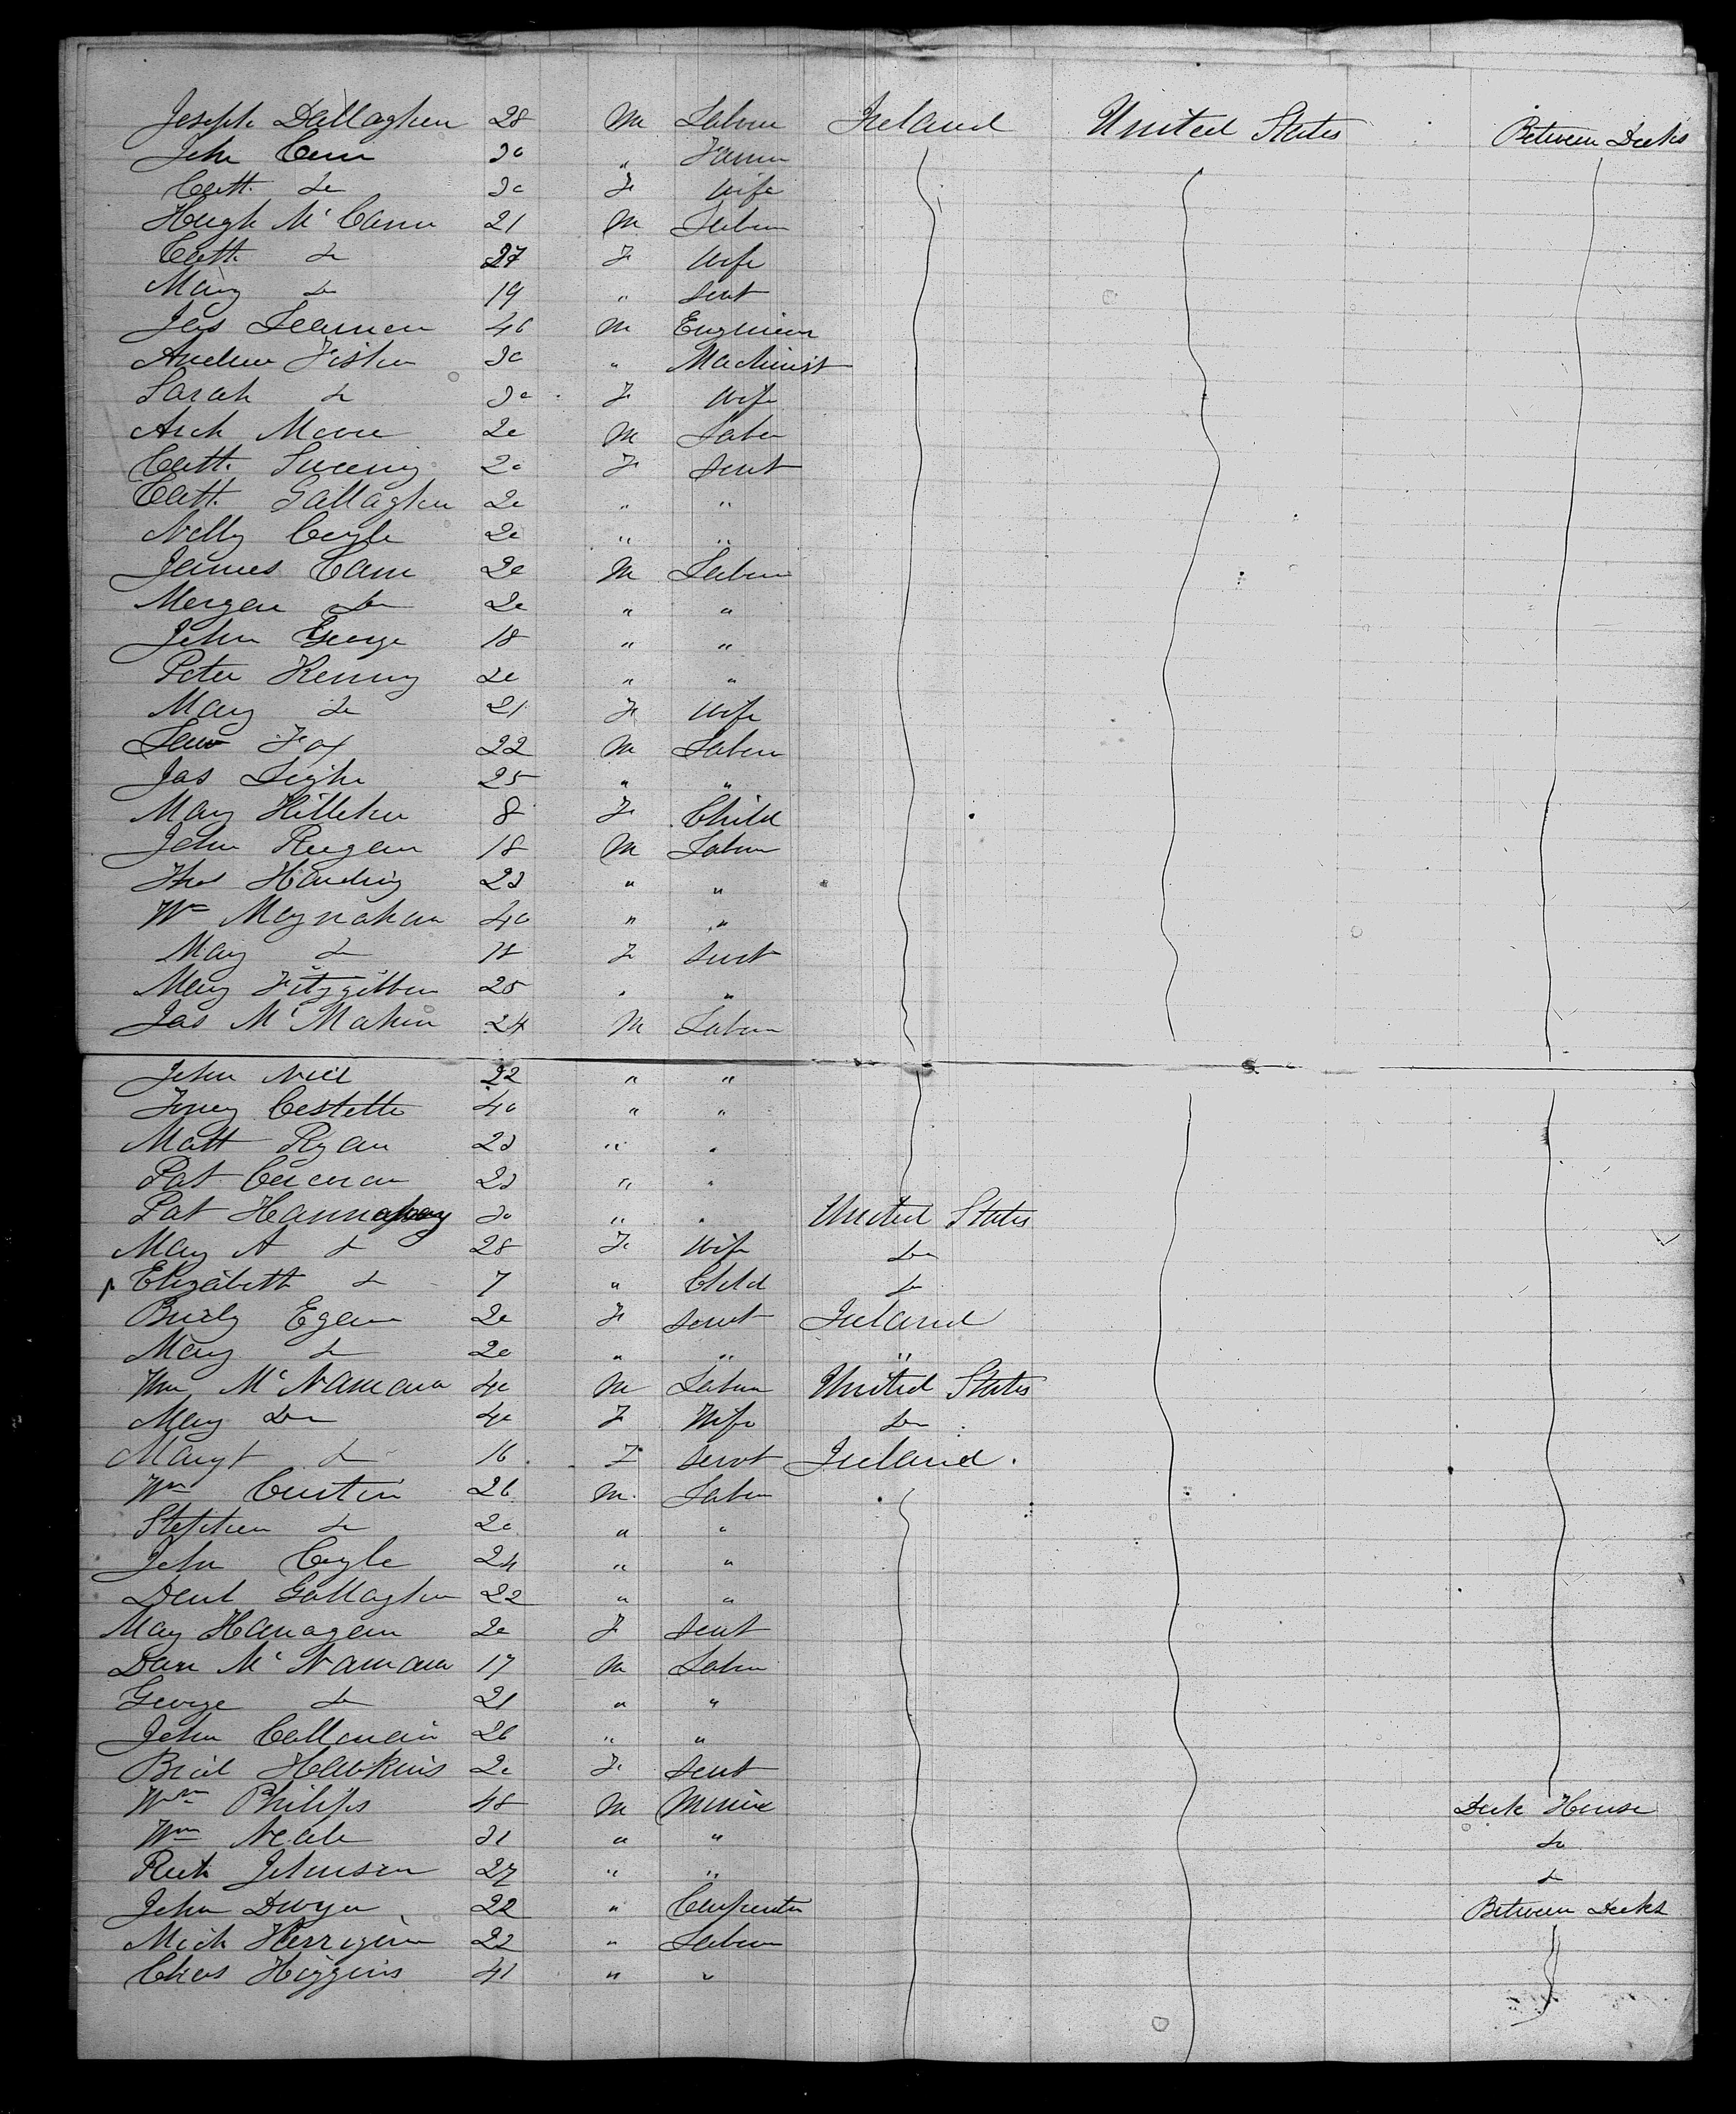 Joseph Dallaghen 28 M Labour Ireland United States Between Decks
John Cain 30 " Farmer
Cath. Do 30 F Wife
Hugh McCann 21 M Labour
Cath. Do 27 F Wife
Mary Do 19 " Servt
Jas 40 M Engineer
Andrew Fisher 30 " Machinist
Sarah Do 30 F Wife
Arch Moore 20 M Labor
Cath. Sweeny 20 F Servt
Cath. Gallagher 20 " "
Nelly Coyle 20 " "
James Cam 20 M Labour
Morgan Do 20 " "
John George 18 " "
Peter Kenny 20 " "
Mary Do 21 F Wife
Law Fox 22 M Labour
Jas Leigh 25 " "
Mary 8 F Child
John Regan 18 M Labour
Thos Harding 23 " "
Wm Moynahan 40 " "
Mary Do 18 F Servt
Mary Fitzgibbon 25 " "
Jas McMahon 24 M Labour
John Neil 22 " "
Costello 40 " "
Matt Ryan 23 " "
Pat Corcoran 23 " "
Pat 30 " " United States
Mary A Do 28 F Wife Do
Elizabeth Do 7 " Child Do
Bridy Egan 20 F Servt Ireland
Mary Do 20 " " "
Wm McNamara 40 M Labour United States
Mary Do 40 F Wife Do
Margt Do 16 F Servt Ireland
Wm Curtin 26 M Labor
Stephen Do 20 " "
John Coyle 24 " "
Danl Gallagher 22 " "
Mary Hanagan 20 F Servt
Dan McNamara 17 M Labor
George Do 21 " "
John Callanain 26 " "
Brid Hawkins 20 F Servt
Wm Philips 48 M Miner Deck House
Wm Neale 31 " " Do
Rich Johnson 27 " " Do
John Dwyer 22 " Carpenter Between Decks
Mich Herrigan 22 " Labour
Chas Higgins 41 " "